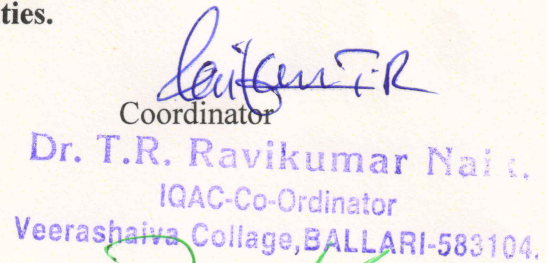 ties.
Coordinator
Dr. T.R. Ravikumar
IQAC-Co-Ordinator
Veerashaiva Collage,BALLARI-583104.